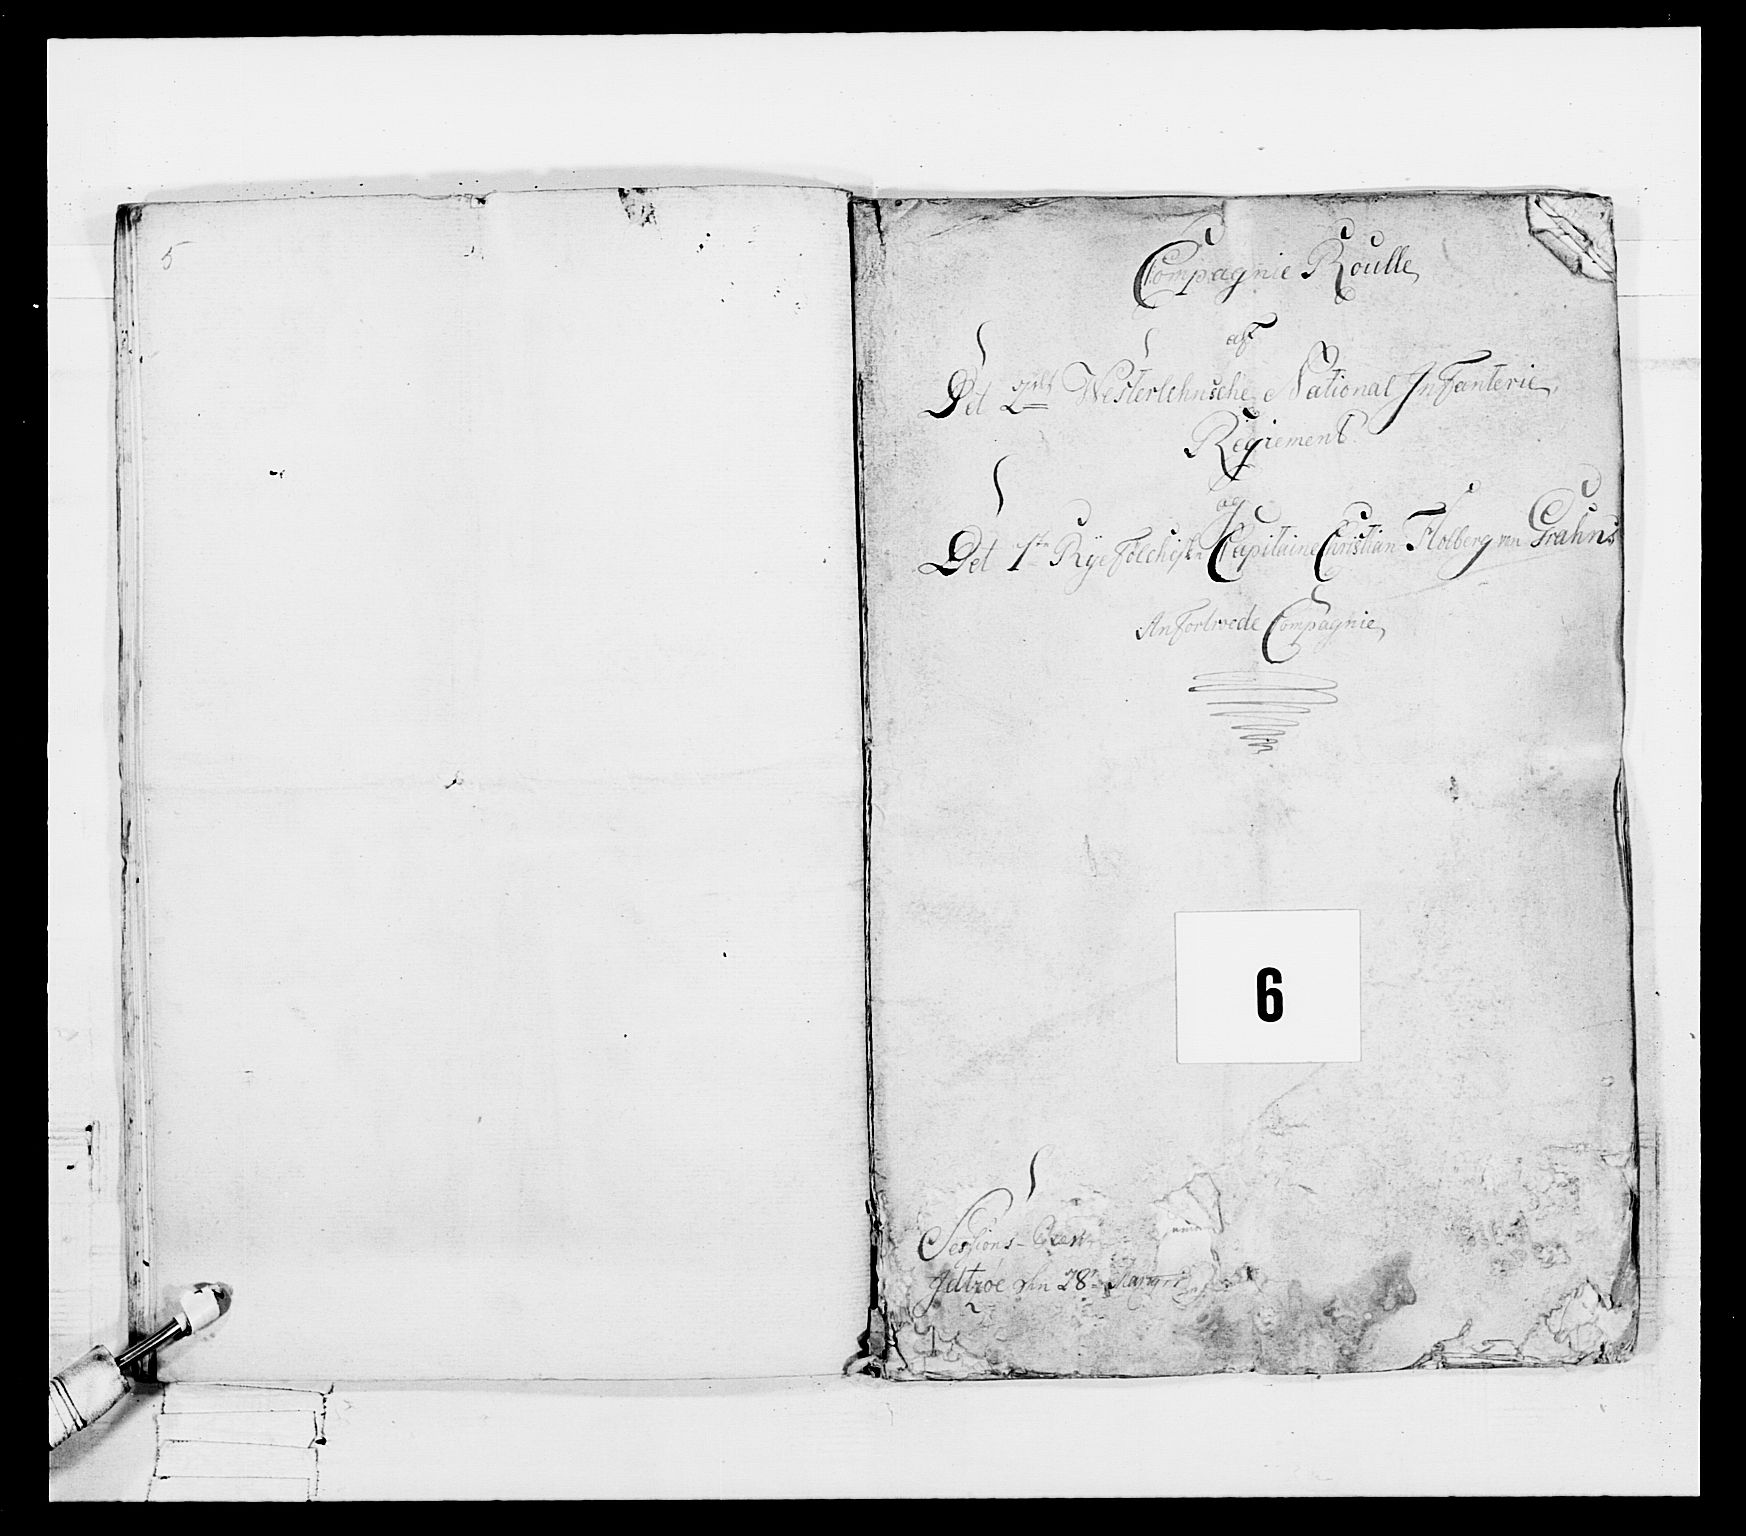 5
Compagnie Roulle
af
Det 2det Westerlehnsche National Infanterie
Regiement
og
Det 1ste Ryefølchiske Capitaine Christian Holberg von Grahns
Anfortroede Compagnie
6
Sessions-
den 28